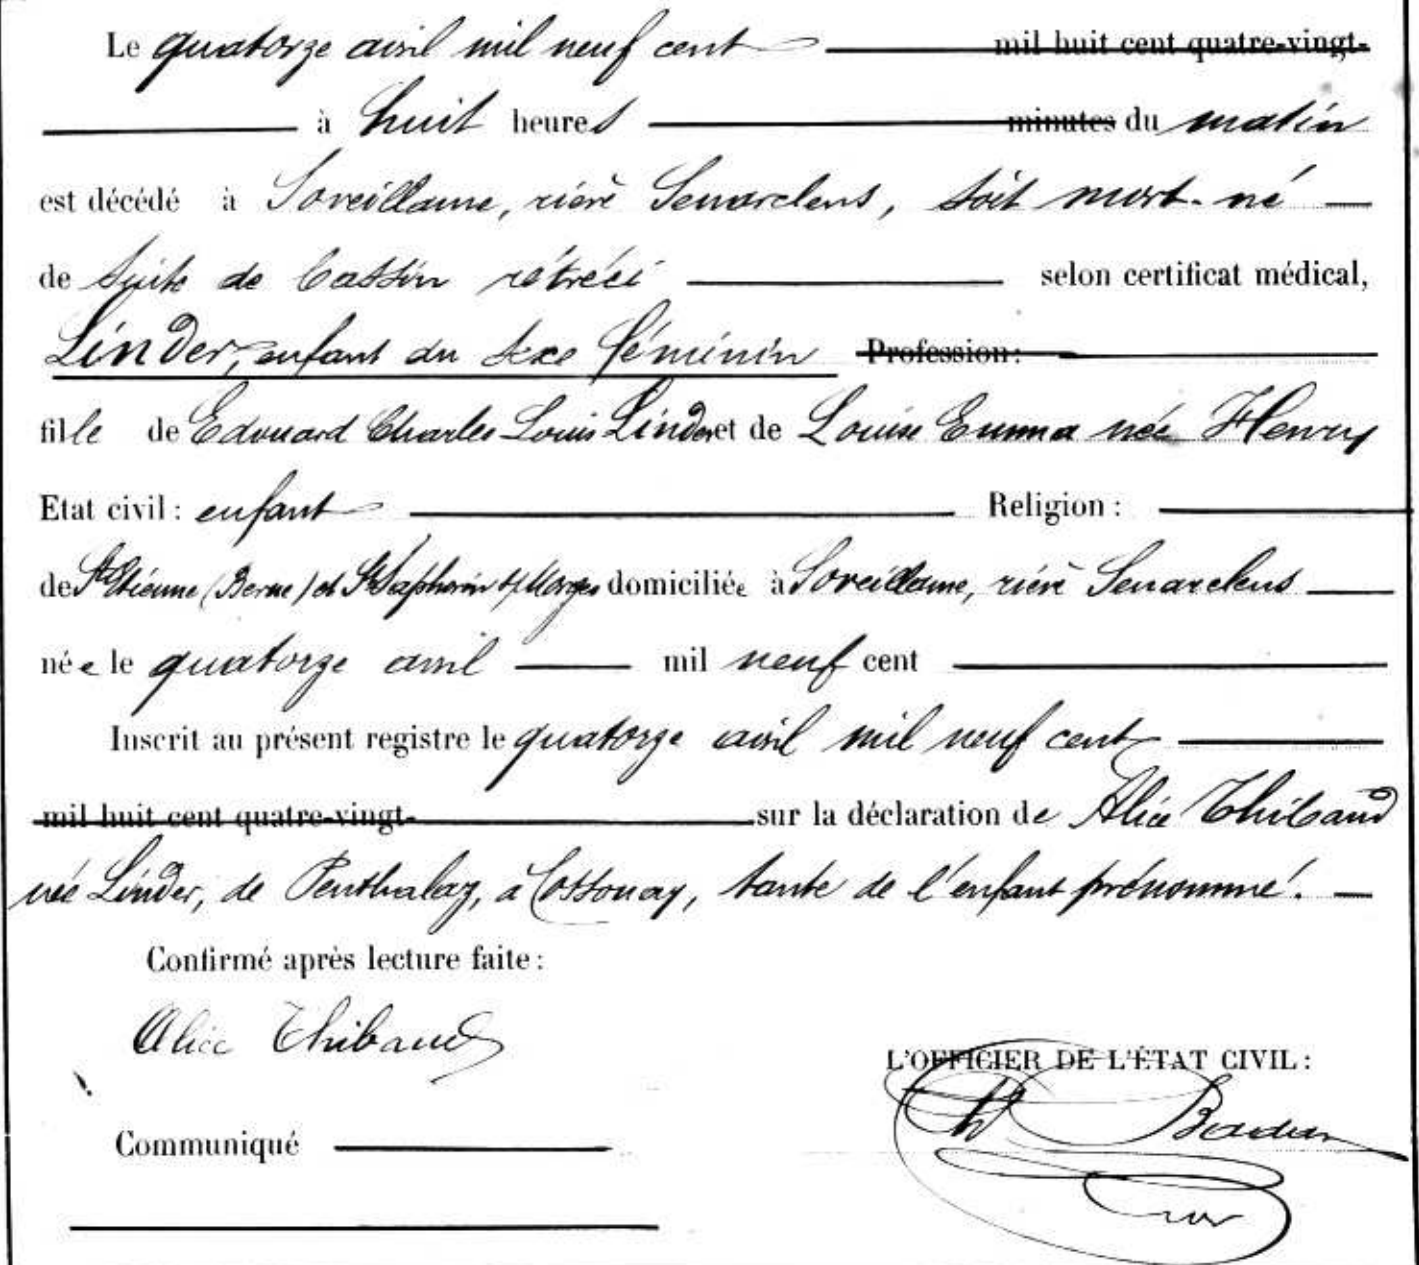 Le quatorze avril mil neuf cent mil huit cent quatre-vingt-
à huit heures minutes du matin
est décédé à Soveillame, rière Senarclens, soit mort-né
de suite de bassin rétréci selon certificat médical,
Linder, enfant du sexe féminin Profession:
fille de Edouard Charles Louis Linder et de Louise Emma née Henry
Etat civil : enfant Religion :
de St Etienne (Berne) et St Saphorin s/ Morges domiciliée à Soveillame, rière Senarclens
née le quatorze avril mil neuf cent
Inscrit au présent registre le quatorze avril mil neuf cent
mil huit cent quatre-vingt- sur la déclaration de Alice Thibaud
née Linder, de Penthalaz, à Cossonay, tante de l'enfant prénommé.
Confirmé après lecture faite :
Alice Thibaud
L'OFFICIER DE L'ÉTAT CIVIL :
Communiqué